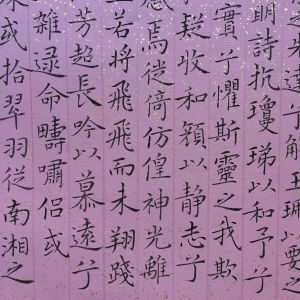 之先達兮解玉珮以要之
明詩抗瓊珶以和予兮
實兮懼斯靈之我欺
疑收和顏以静志兮
感焉徙倚仿偟神光離
立若將飛飛而未翔踐
芳超長吟以慕遠兮
雜遝命疇嘯侶或
或拾翠羽從南湘之